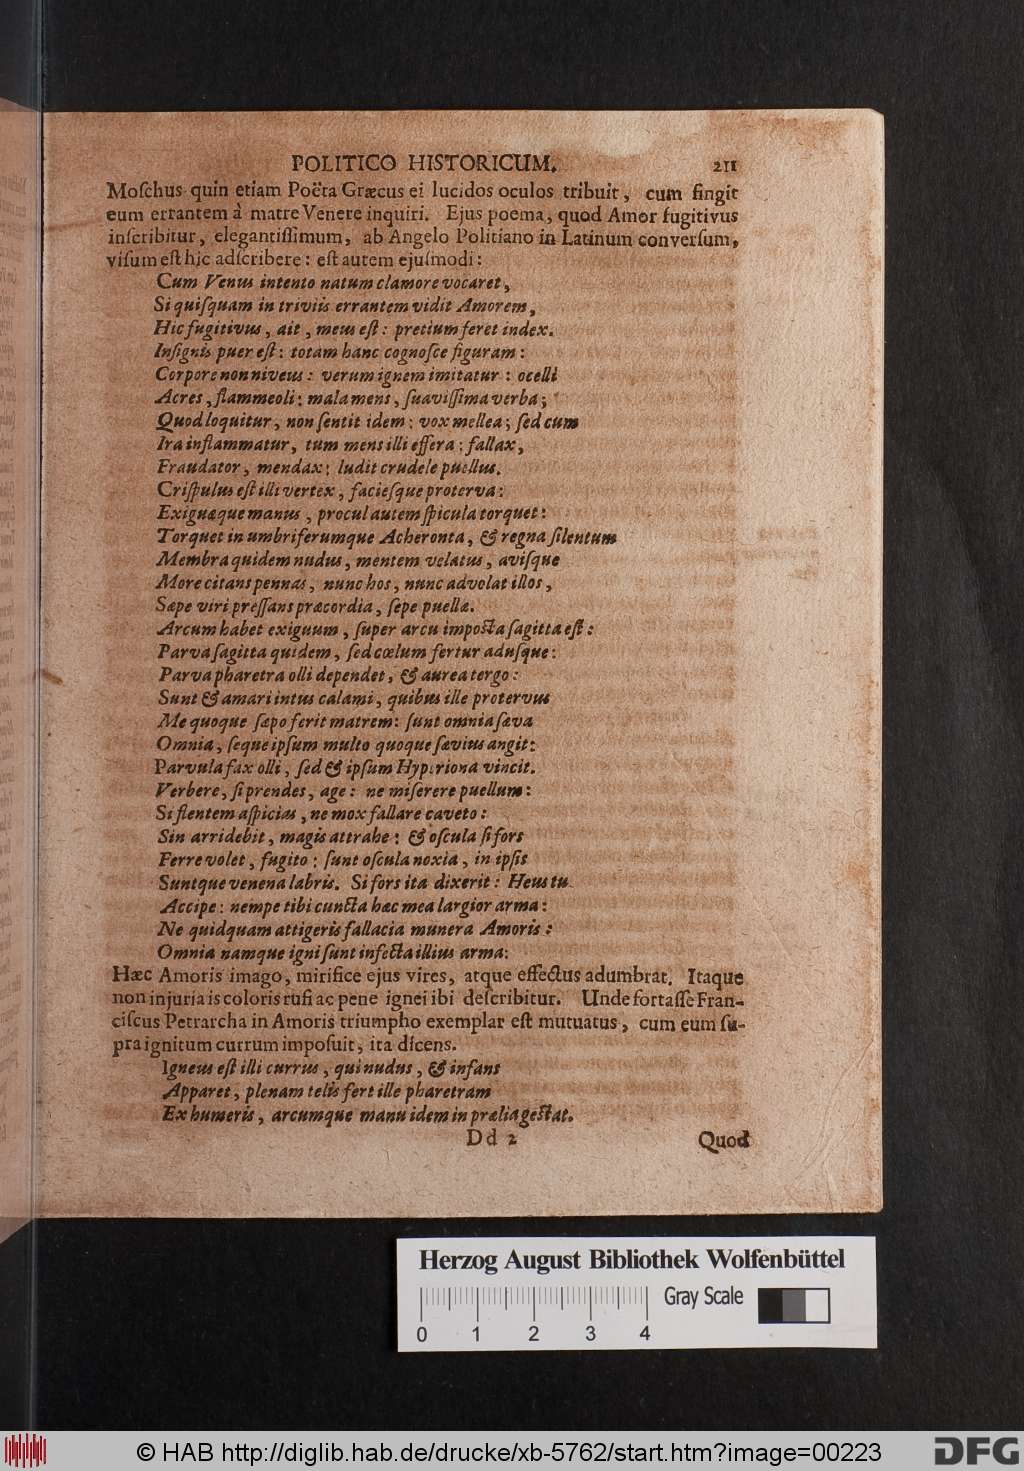 POLITICO HISTORICUM. 211
Moſchus quin etiam Poëta Græcus ei lucidos oculos tribuit, cum fingit
eum errantem à matre Venere inquiri. Ejus poema, quod Amor fugitivus
inſcribitur, elegantiſſimum, ab Angelo Politiano in Latinum converſum,
viſum eſt hic adſcribere: eſt autem ejuſmodi:
Cum Venus intento natum clamore vocaret,
Si quiſquam in triviis errantem vidit Amorem,
Hic fugitivus, ait, meus eſt: pretium feret index.
Inſignis puer eſt: totam hanc cognoſce figuram:
Corpore non niveus: verum ignem imitatur: ocelli
Acres, flammeoli: mala mens, ſuaviſſima verba;
Quod loquitur, non ſentit idem: vox mellea; ſed cum
Ira inflammatur, tum mens illi effera: fallax,
Fraudator, mendax: ludit crudele puellus.
Criſpulus eſt illi vertex, facieſque proterva:
Exiguæque manus, procul autem ſpicula torquet:
Torquet in umbriferumque Acheronta, & regna ſilentum
Membra quidem nudus, mentem velatus, aviſque
More citans pennas, nunc hos, nunc advolat illos,
Sæpe viri preſſans præcordia, ſepe puellæ.
Arcum habet exiguum, ſuper arcu impoſta ſagitta eſt:
Parva ſagitta quidem, ſed cœlum fertur aduſque:
Parva pharetra olli dependet, & aurea tergo:
Sunt & amari intus calami, quibus ille protervus
Me quoque ſæpo ferit matrem: ſunt omnia ſæva
Omnia, ſeque ipſum multo quoque ſævius angit:
Parvula fax olli, ſed & ipſum Hyperiona vincit.
Verbere, ſi prendes, age: ne miſerere puellum:
Si flentem aſpicias, ne mox fallare caveto:
Sin arridebit, magis attrahe: & oſcula ſi fors
Ferre volet, fugito: ſunt oſcula noxia, in ipſis
Suntque venena labris. Si fors ita dixerit: Heus tu
Accipe: nempe tibi cuncta hæc mea largior arma:
Ne quidquam attigeris fallacia munera Amoris:
Omnia namque igni ſunt infecta illius arma:
Hæc Amoris imago, mirifice ejus vires, atque effectus adumbrat. Itaque
non injuria is coloris rufi ac pene ignei ibi deſcribitur. Unde fortaſſe Fran-
ciſcus Petrarcha in Amoris triumpho exemplar eſt mutuatus, cum eum ſu-
pra ignitum currum impoſuit, ita dicens.
Igneus eſt illi currus, qui nudus, & infans
Apparet, plenam telis fert ille pharetram
Ex humeris, arcumque manu idem in prælia geſtat.
Dd 2 Quod
Herzog August Bibliothek Wolfenbüttel
Gray Scale
0 1 2 3 4
© HAB http://diglib.hab.de/drucke/xb-5762/start.htm?image=00223 DFG